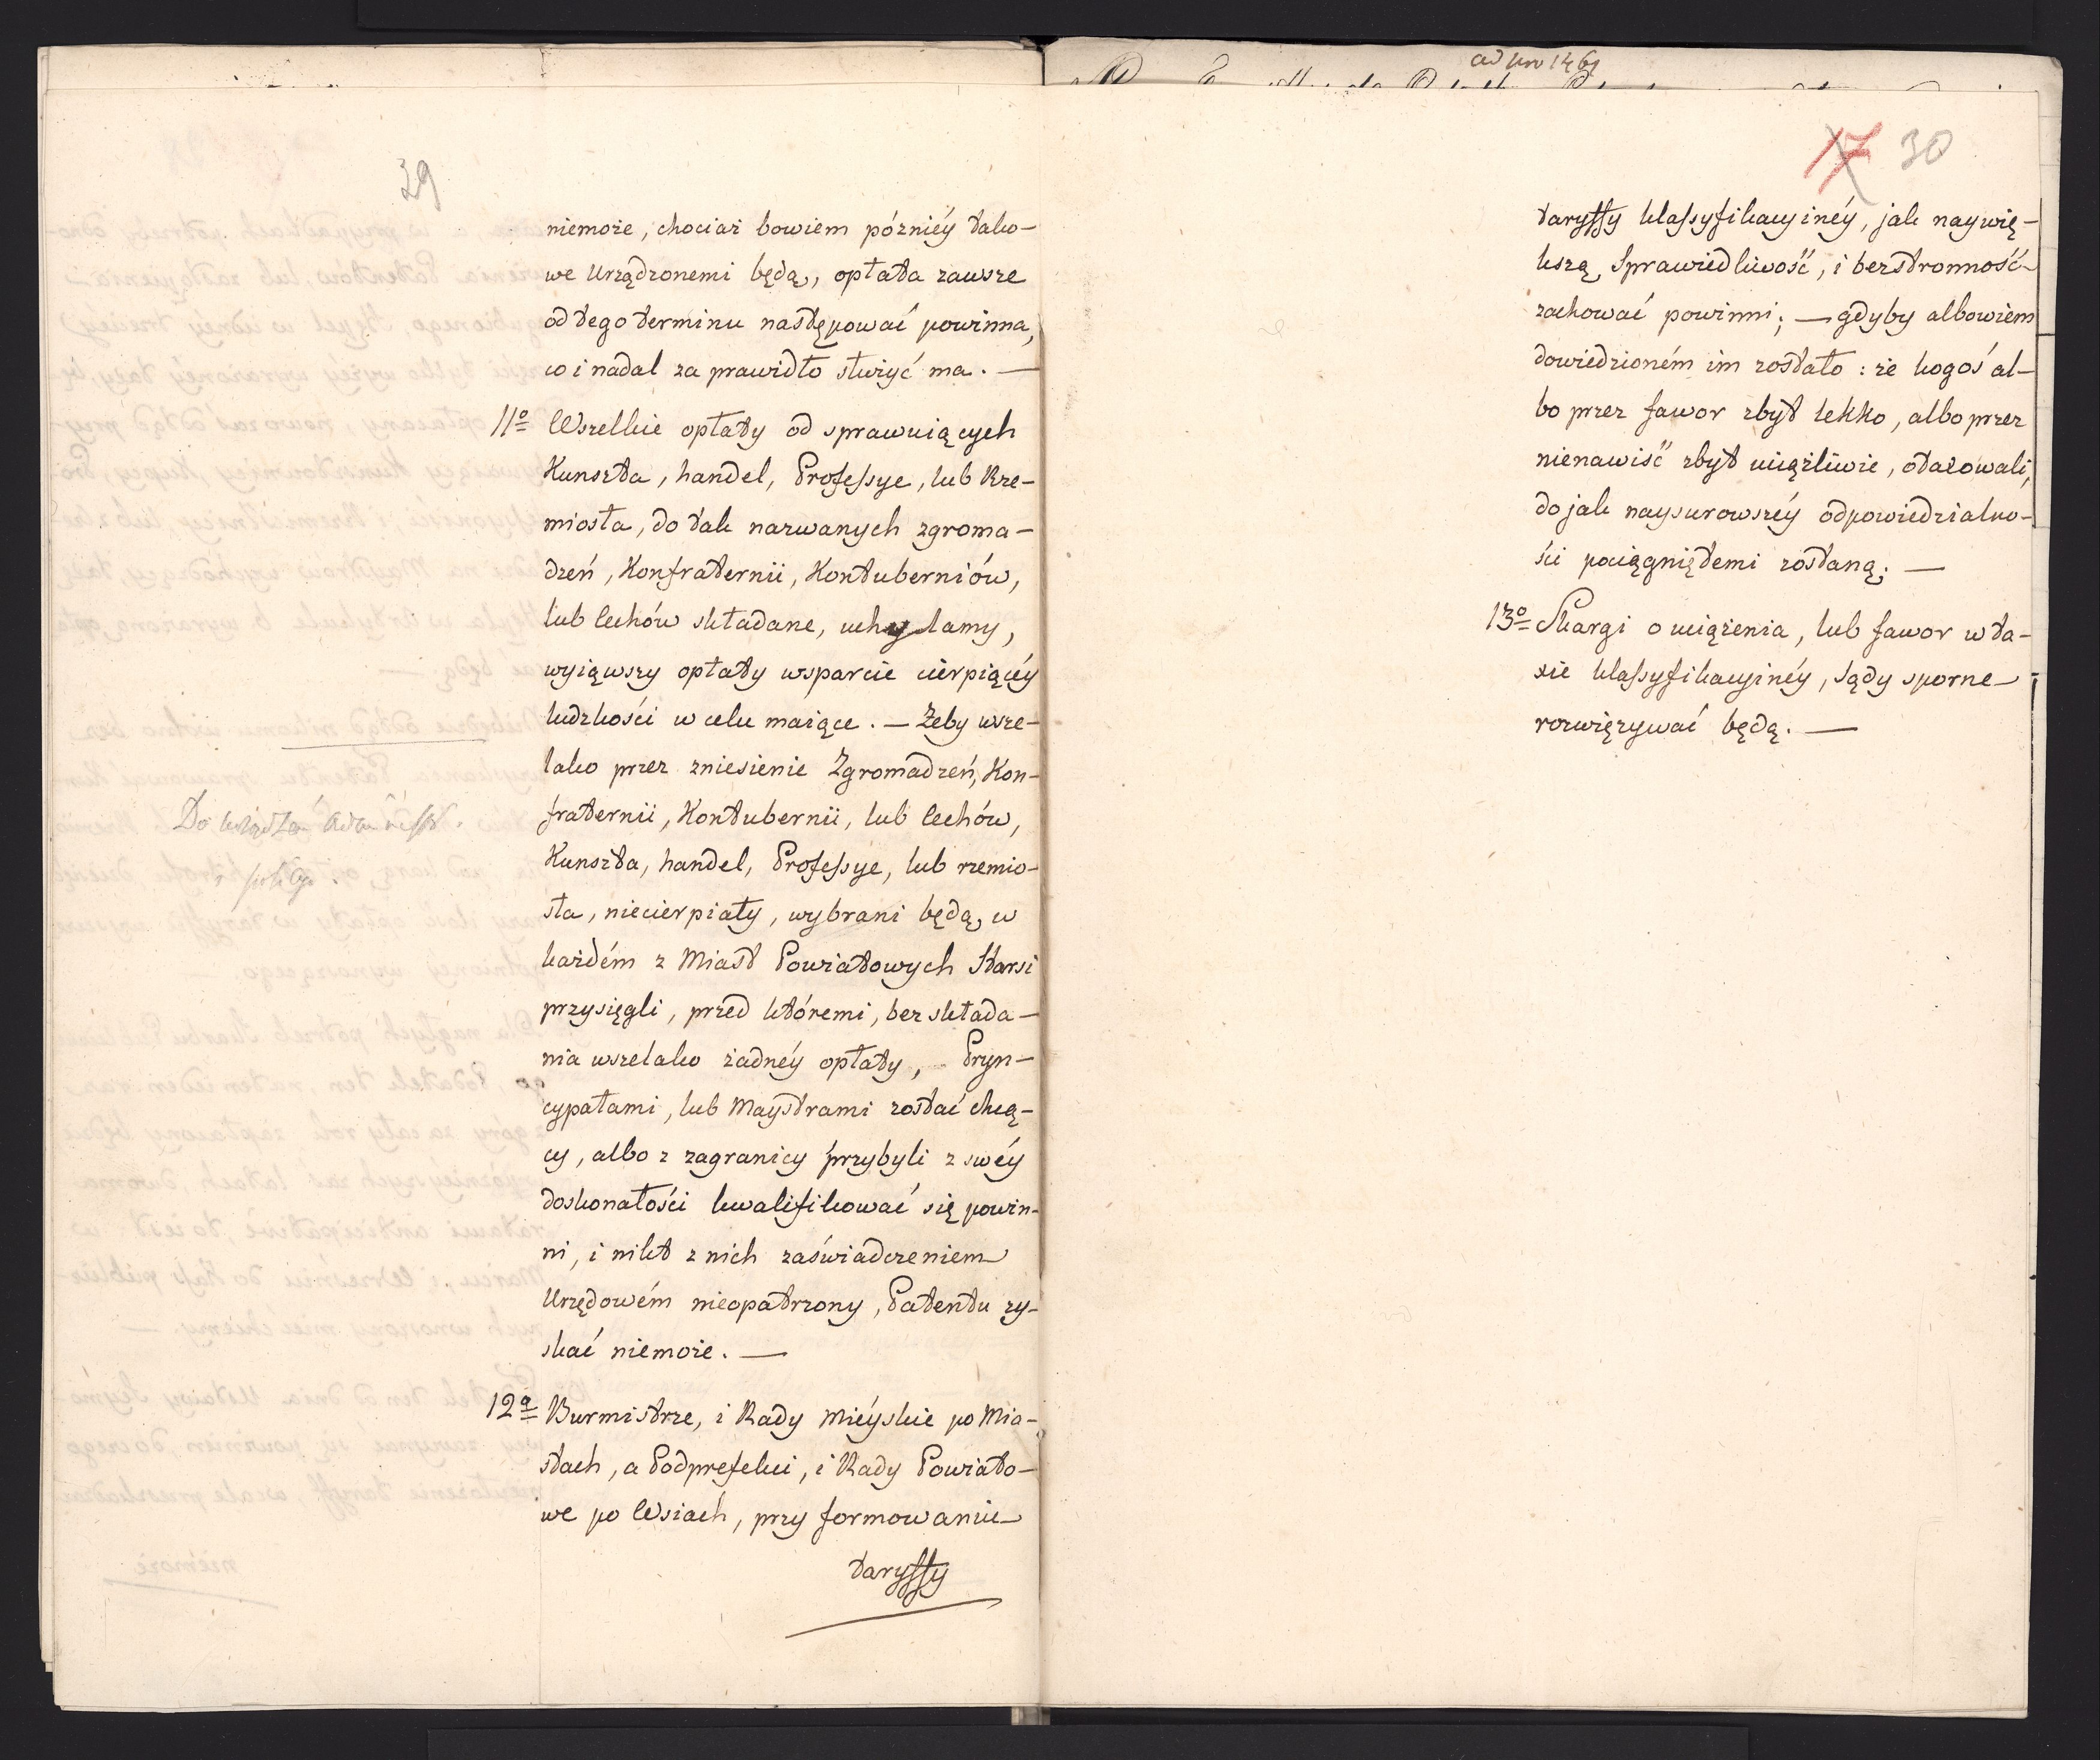 29
niemoże, chociaż bowiem późniéy tako-
we Urządzonemi będą, opłata zawsze
od tego terminu następować powinna,
co i nadal za prawidło służyć ma. —
11º Wszelkie opłaty od sprawuiących
Kunszta, handel, Professye, lub Rze-
miosła, do tak nazwanych zgroma-
dzeń, Konfraternii, Kontuberniów,
lub Cechów składane, uchylamy,
wyiąwszy opłaty wsparcie cierpiącéy
ludzkości w celu maiące. — Żeby wsze-
lako przez zniesienie Zgromadzeń, Kon-
fraternii, Kontubernii, lub Cechów,
Kunszta, handel, Professye, lub rzemio-
sła, niecierpiały, wybrani będą, w
każdém z Miast Powiatowych Starsi
przysięgli, przed któremi, bez składa-
nia wszelako żadnéy opłaty, Pryn-
cypałami, lub Maystrami zostać chcą-
cy, albo z zagranicy przybyli z swéy
doskonałości kwalifikować się powin-
ni, i nikt z nich zaświadczeniem
Urzędowém nieopatrzony, Patentu zy-
skać niemoże. —
12º Burmistrze, i Rady Miéyskie po Mia-
stach, a Podprefekci, i Rady Powiato-
we po Wsiach, przy formowaniu
taryffy
ad Nro 1461
17 30
taryffy klassyfikacyinéy, jak naywię-
kszą, Sprawiedliwość, i bezstronność
zachować powinni; — gdyby albowiem
dowiedzioném im zostało: że kogoś al-
bo przez fawor zbyt lekko, albo przez
nienawiść zbyt uciążliwie, otaxowali,
do jak naysurowszéy odpowiedzialno-
ści pociągniętemi zostaną; —
13º Skargi o uciążenia, lub fawor w ta-
xie klassyfikacyinéy, Sądy sporne
rozwięzywać będą. —